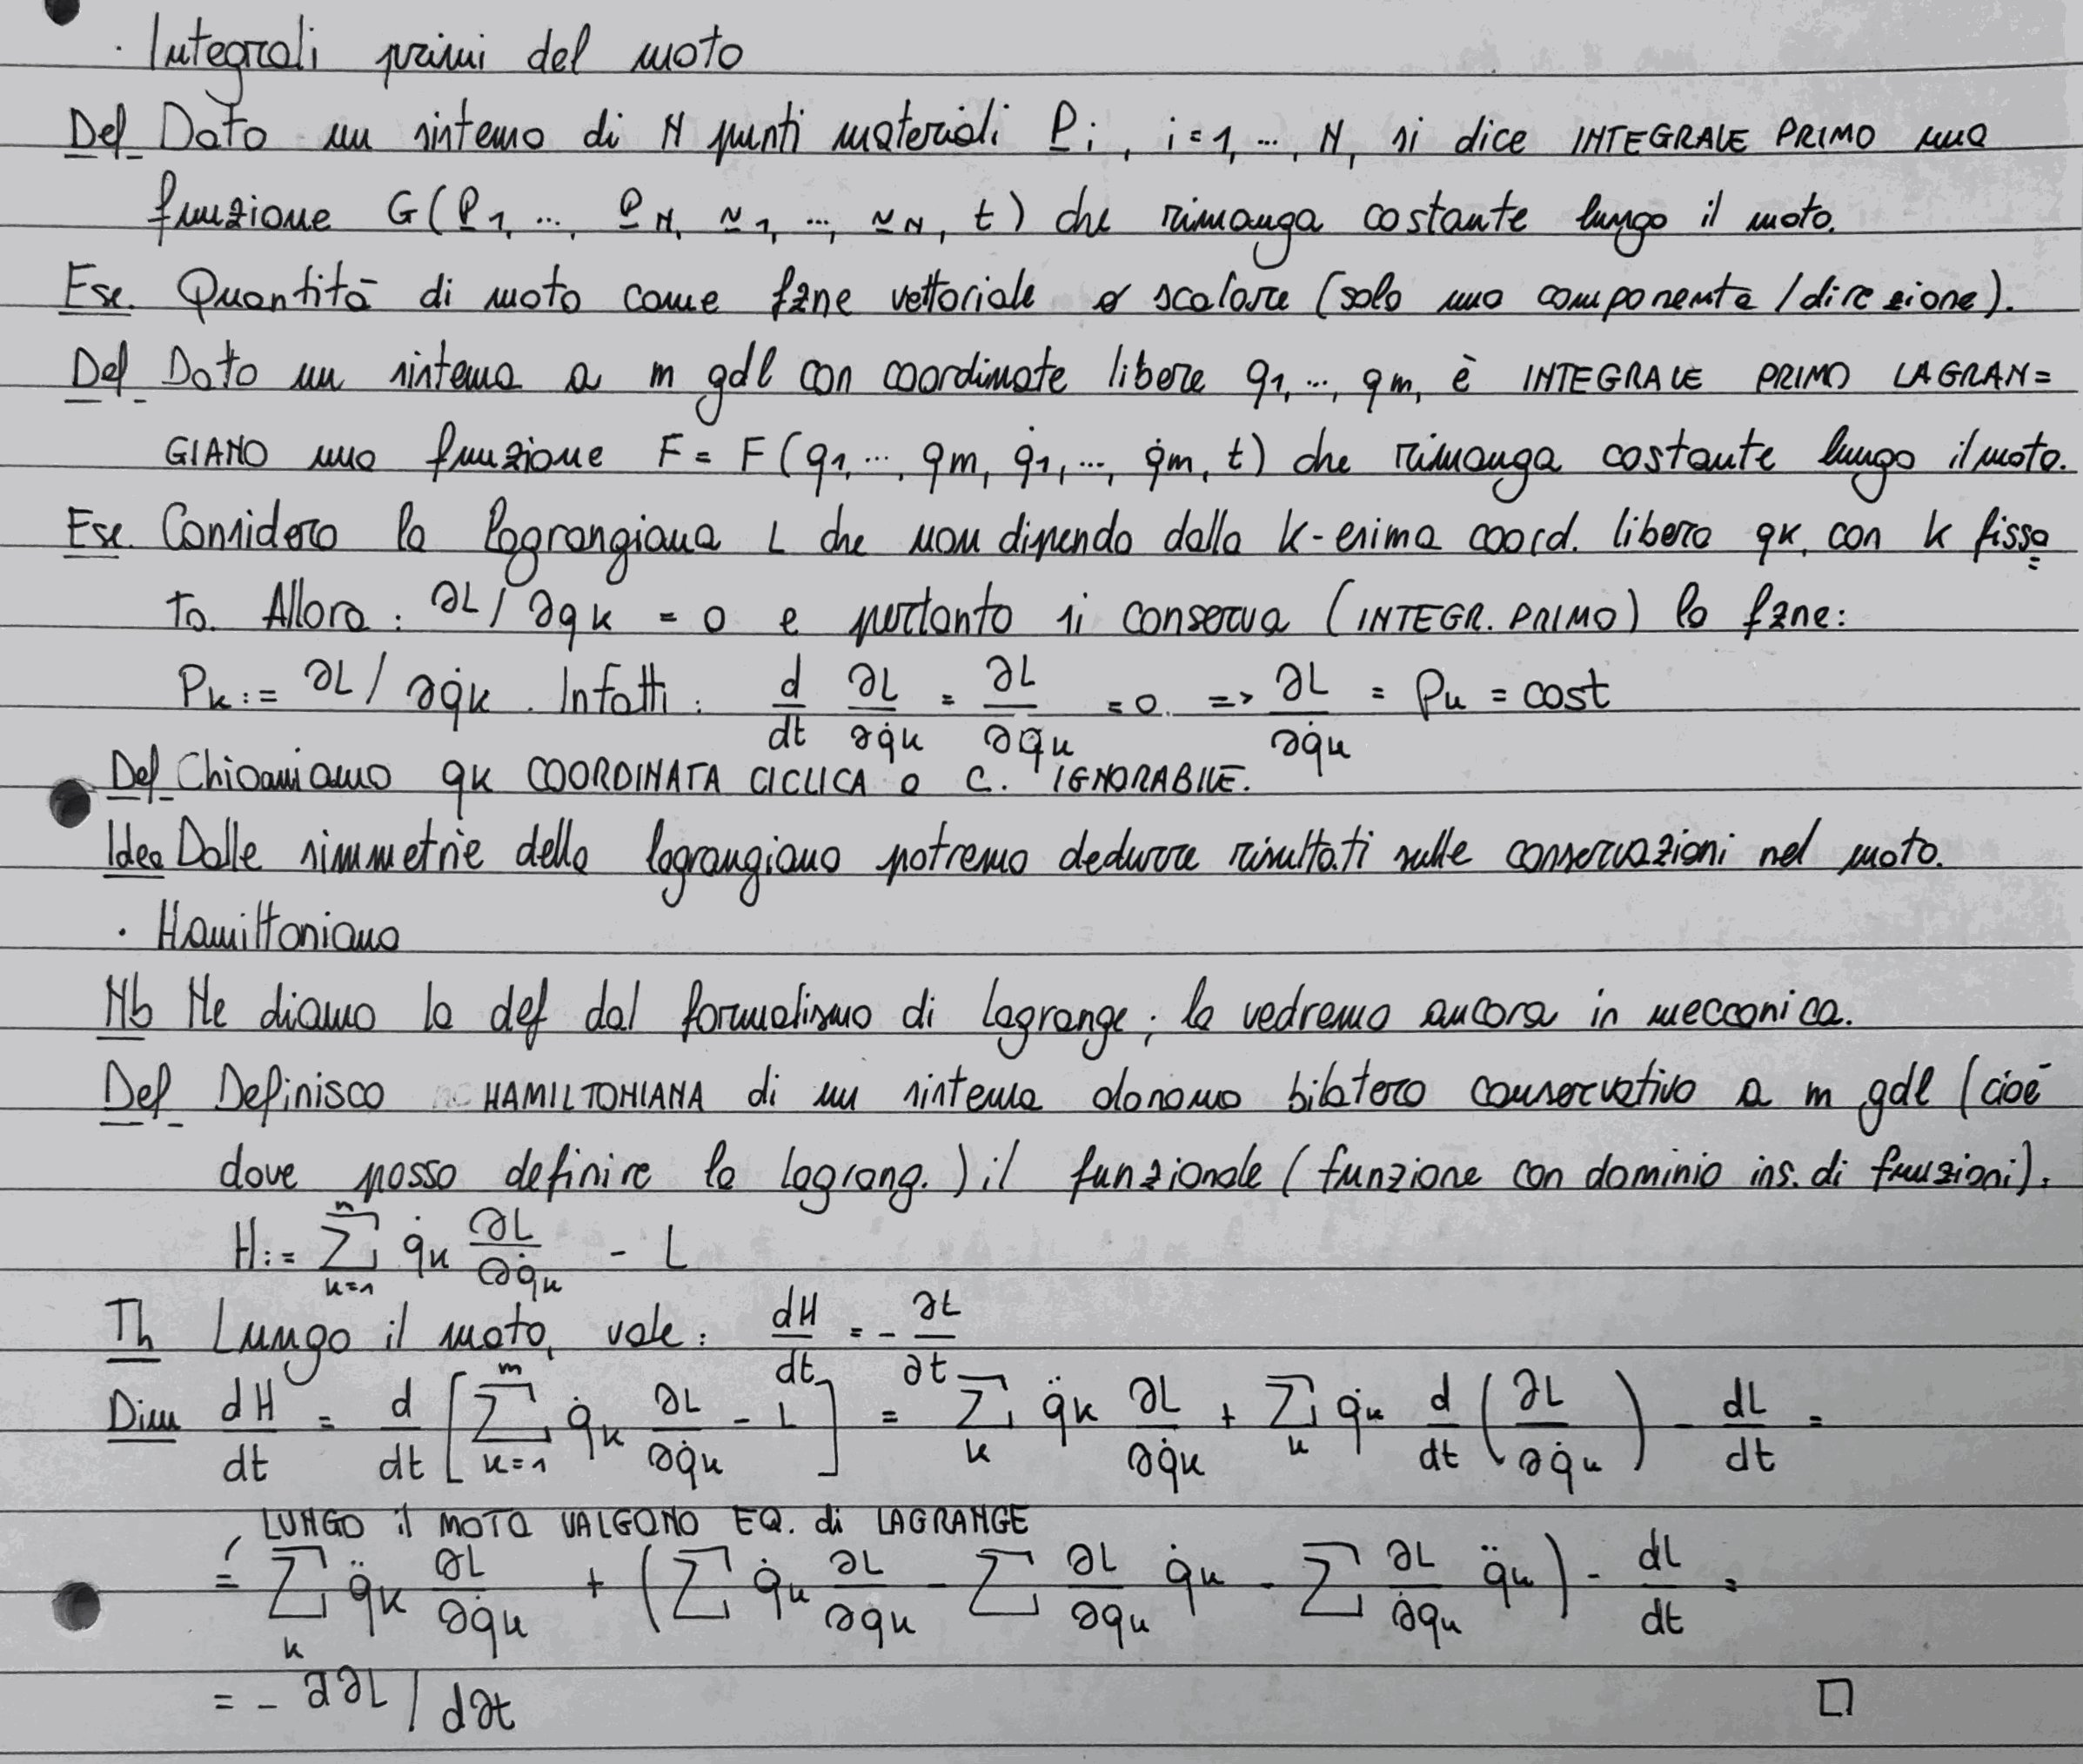 · Integrali primi del moto
Def Dato un sistema di N punti materiali P̲i, i=1, ..., N, si dice INTEGRALE PRIMO una
funzione G(P̲1, ..., P̲N, v̲1, ..., v̲N, t) che rimanga costante lungo il moto.
Ese. Quantità di moto come fzne vettoriale o scalare (solo una componente/direzione).
Def Dato un sistema a m gdl con coordinate libere q1, ..., qm, è INTEGRALE PRIMO LAGRAN=
GIANO una funzione F = F(q1, ..., qm, q̇1, ..., q̇m, t) che rimanga costante lungo il moto.
Ese. Considero la lagrangiana L che non dipenda dalla k-esima coord. libera qk, con k fissa=
to. Allora: ∂L/∂qk = 0 e pertanto si conserva (INTEGR. PRIMO) la fzne:
Pk := ∂L/∂q̇k. Infatti: d/dt ∂L/∂q̇k = ∂L/∂qk = 0. => ∂L/∂q̇k = Pk = cost
Def Chiamiamo qk COORDINATA CICLICA o C. IGNORABILE.
Idea Dalle simmetrie della lagrangiana potremo dedurre risultati sulle conservazioni nel moto.
· Hamiltoniana
Nb Ne diamo la def dal formalismo di Lagrange; la vedremo ancora in meccanica.
Def Definisco HAMILTONIANA di un sistema olonomo bilatero conservativo a m gdl (cioè
dove posso definire la lagrang.) il funzionale (funzione con dominio ins. di funzioni):
H := ∑_{k=1}^{n} q̇k ∂L/∂q̇k - L
Th Lungo il moto, vale: dH/dt = - ∂L/∂t
Dim dH/dt = d/dt [∑_{k=1}^{m} q̇k ∂L/∂q̇k - L] = ∑_k q̈k ∂L/∂q̇k + ∑_k q̇k d/dt (∂L/∂q̇k) - dL/dt =
LUNGO il MOTO VALGONO EQ. di LAGRANGE
= ∑_k q̈k ∂L/∂q̇k + (∑ q̇k ∂L/∂qk - ∑ ∂L/∂qk q̇k - ∑ ∂L/∂q̇k q̈k) - dL/dt =
= - ∂L/∂t □